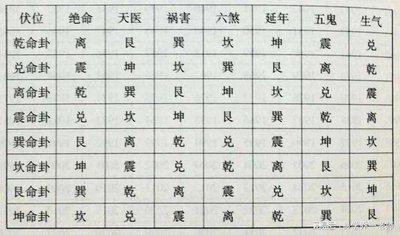 伏位 绝命 天医 祸害 六煞 延年 五鬼 生气
乾命卦 离 艮 巽 坎 坤 震 兑
兑命卦 震 坤 坎 巽 艮 离 乾
离命卦 乾 巽 艮 坤 坎 兑 震
震命卦 兑 坎 坤 艮 巽 乾 离
巽命卦 艮 离 乾 兑 震 坤 坎
坎命卦 坤 震 兑 乾 离 艮 巽
艮命卦 巽 乾 离 震 兑 坎 坤
坤命卦 坎 兑 震 离 乾 巽 艮